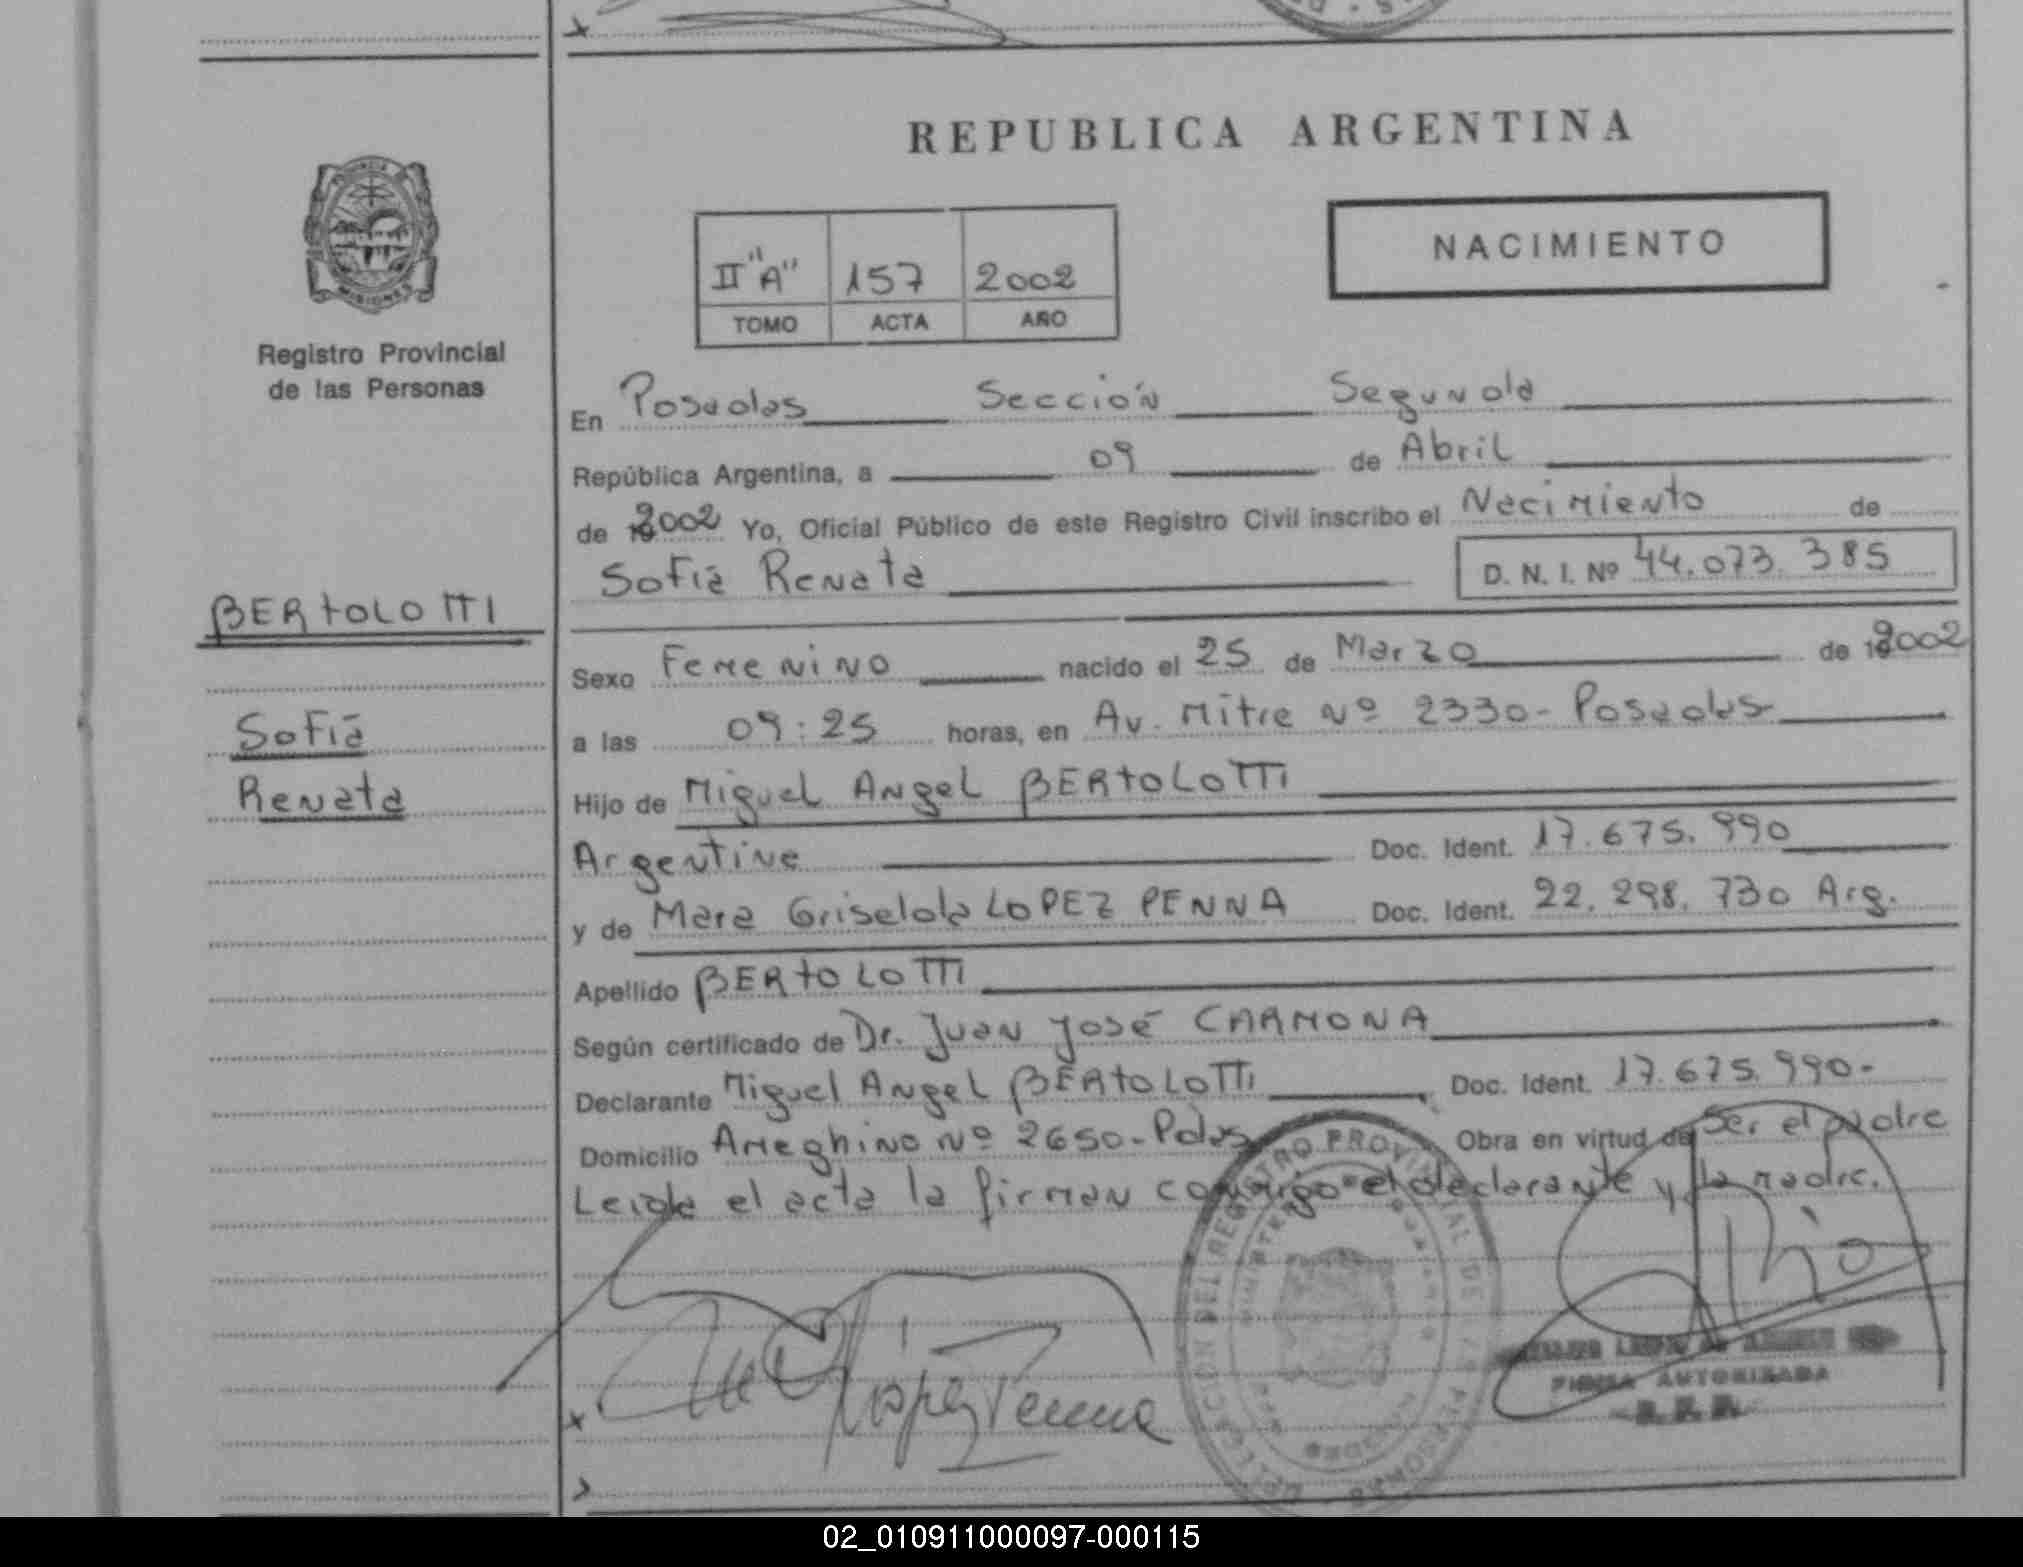 REPUBLICA ARGENTINA
NACIMIENTO
II "A" 157 2002
TOMO ACTA AÑO
MISIONES
Registro Provincial
de las Personas
BERTOLOTTI
Sofia
Renata
En Posadas Sección Segunda
República Argentina, a 09 de Abril
de 2002 Yo, Oficial Público de este Registro Civil inscribo el Nacimiento de
Sofia Renata D. N. I. Nº 44.073.385
Sexo Femenino nacido el 25 de Marzo de 2002
a las 09:25 horas, en Av. Mitre Nº 2330- Posadas
Hijo de Miguel Angel BERTOLOTTI
Argentina Doc. Ident. 17.675.990
y de Mara Griselda LOPEZ PENNA Doc. Ident. 22.298.730 Arg.
Apellido BERTOLOTTI
Según certificado de Dr. Juan José CARMONA
Declarante Miguel Angel BERTOLOTTI Doc. Ident. 17.675.990-
Domicilio Ameghino Nº 2650- Pdas Obra en virtud de Ser el padre
Leida el acta la firman conmigo el declarante y la madre.
López Penna
DIRECCION DEL REGISTRO PROVINCIAL DE LAS PERSONAS
FIRMA AUTORIZADA
02_010911000097-000115